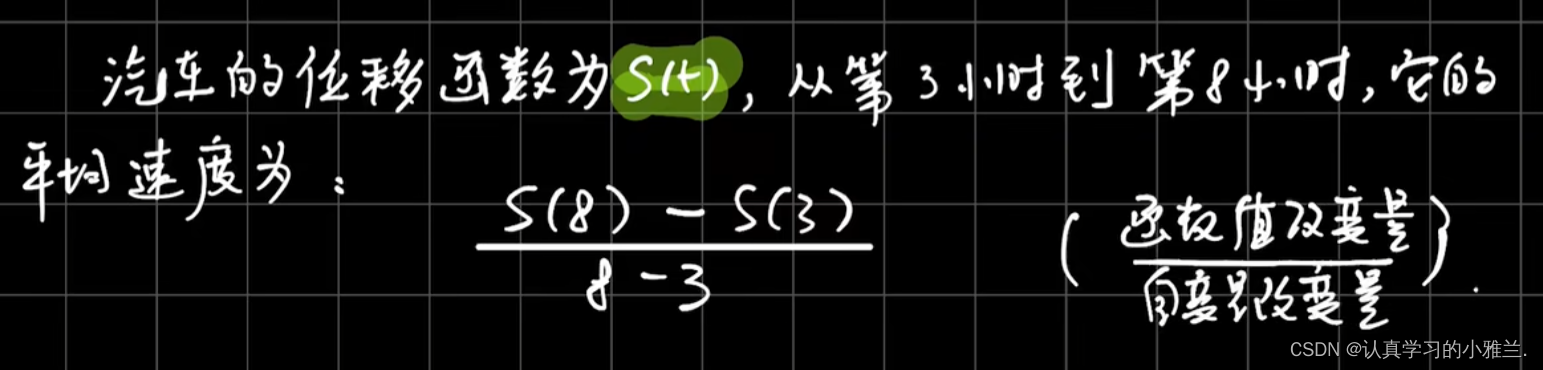 汽车的位移函数为S(t)，从第3小时到第8小时，它的
平均速度为：
S(8) - S(3)
8 - 3
(函数值改变量
自变量改变量).
CSDN @认真学习的小雅兰.